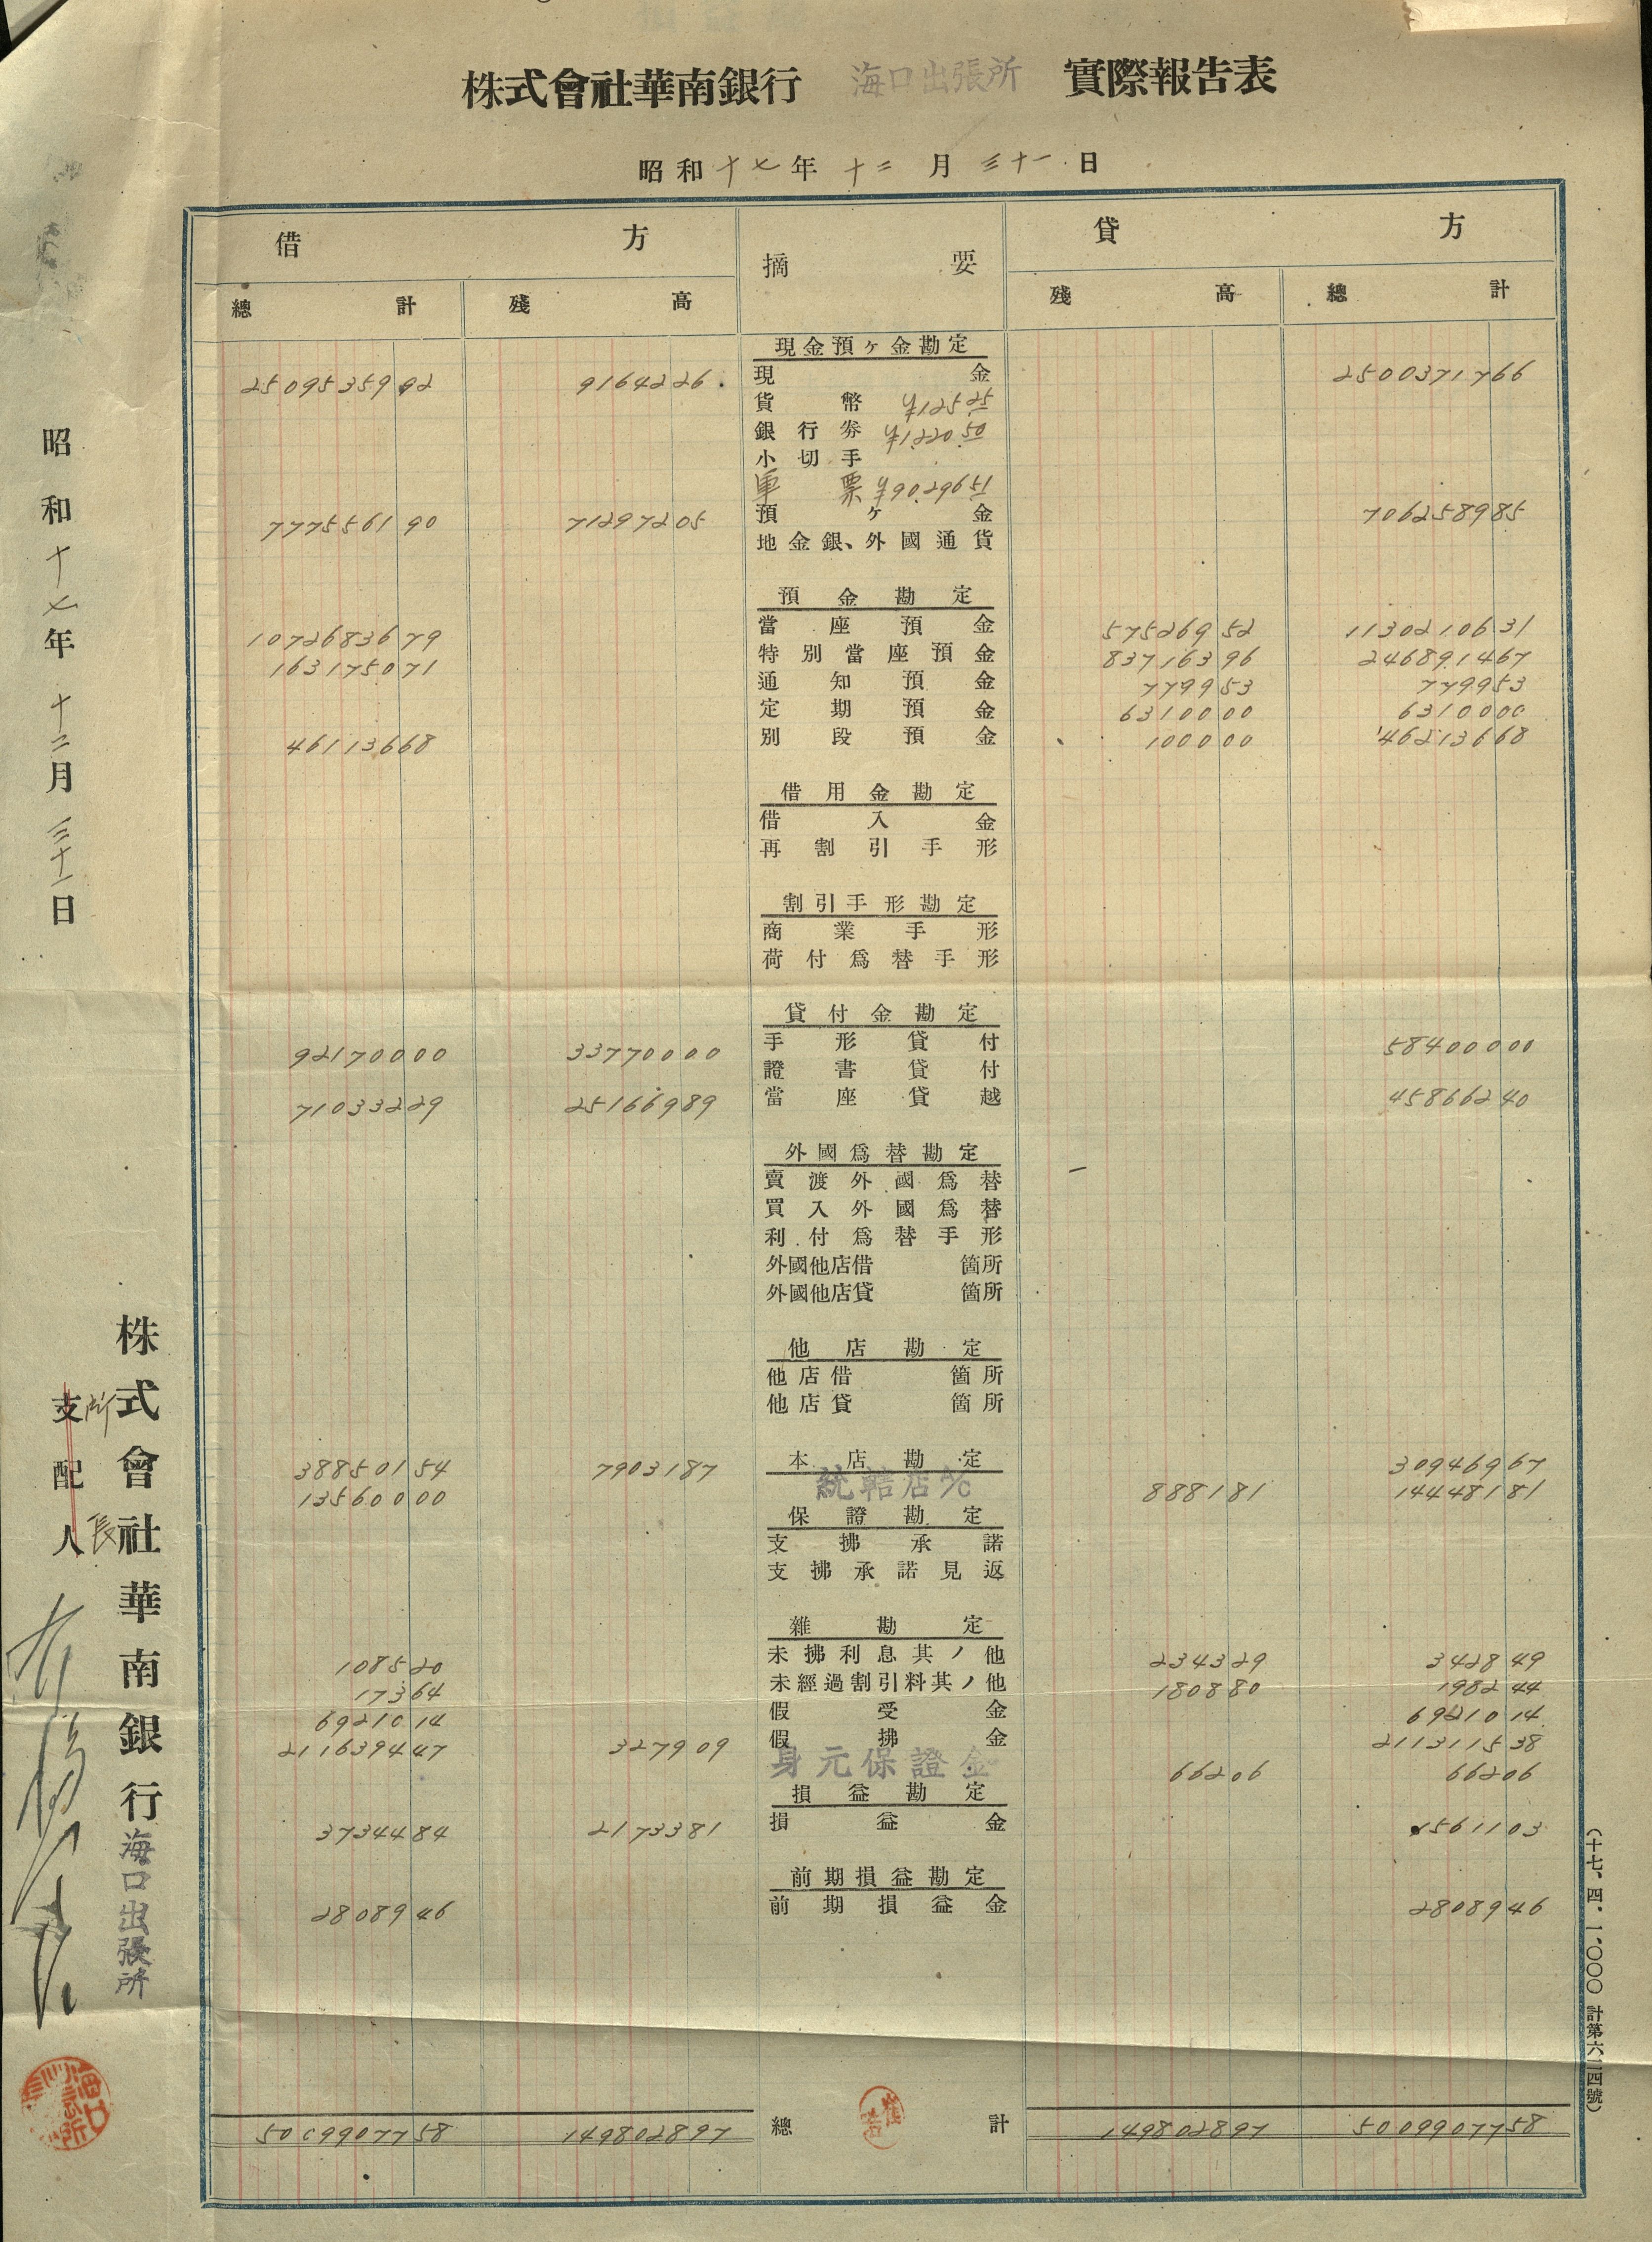 株式會社華南銀行 海口出張所 實際報告表
昭和十七年十二月三十一日
借方 摘要 貸方
總計 殘高 殘高 總計
現金預ヶ金勘定
25095359 92 91642 26 現金 25003717 66
貨幣 ¥125 25
銀行券 ¥1,220 50
小切手
軍票 ¥90,296 51
7775561 90 712972 05 預ヶ金 7062589 85
地金銀、外國通貨
預金勘定
10726836 79 當座預金 575269 52 11302106 31
1631750 71 特別當座預金 837163 96 2468914 67
通知預金 7799 53 7799 53
定期預金 63100 00 63100 00
461136 68 別段預金 1000 00 462136 68
借用金勘定
借入金
再割引手形
割引手形勘定
商業手形
荷付爲替手形
貸付金勘定
921700 00 337700 00 手形貸付 584000 00
證書貸付
710332 29 251669 89 當座貸越 458662 40
外國爲替勘定
賣渡外國爲替
買入外國爲替
利付爲替手形
外國他店借 箇所
外國他店貸 箇所
他店勘定
他店借 箇所
他店貸 箇所
388501 54 79031 87 本店勘定 309469 67
135600 00 統轄店a/c 8881 81 144481 81
保證勘定
支拂承諾
支拂承諾見返
雜勘定
1085 20 未拂利息其ノ他 2343 29 3428 49
173 64 未經過割引料其ノ他 1808 80 1982 44
69210 14 假受金 69210 14
2116394 47 3279 09 假拂金 2113115 38
身元保證金 662 06 662 06
損益勘定
37344 84 21733 81 損益金 15611 03
前期損益勘定
28089 46 前期損益金 28089 46
50099077 58 1498028 97 總計 1498028 97 50099077 58
(十七、四、一、〇〇〇 計第六二四號)
昭和十七年十二月三十一日
株式會社華南銀行海口出張所
支配人
所長